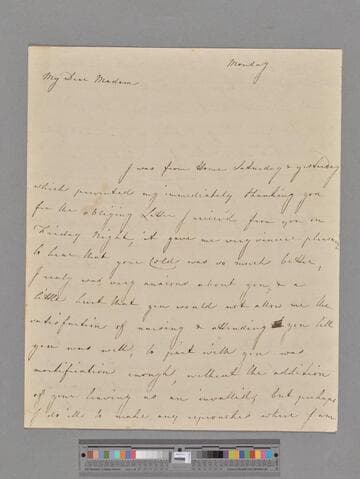 Monday
My Dear Madam
I was from Home Saturday & yesterday
which prevented my immediately thanking you
for the obliging Letter I received from you on
Friday Night, it gave me very sincere pleasure
to hear that your Cold was so much better,
I realy was very anxious about you, & a
little hurt that you would not allow me the
satisfaction of nursing & attending you till
you was well, to part with you was
mortification enough, without the addition
of your leaving us an invallid, but perhaps
I do ill to make any reproaches where I am